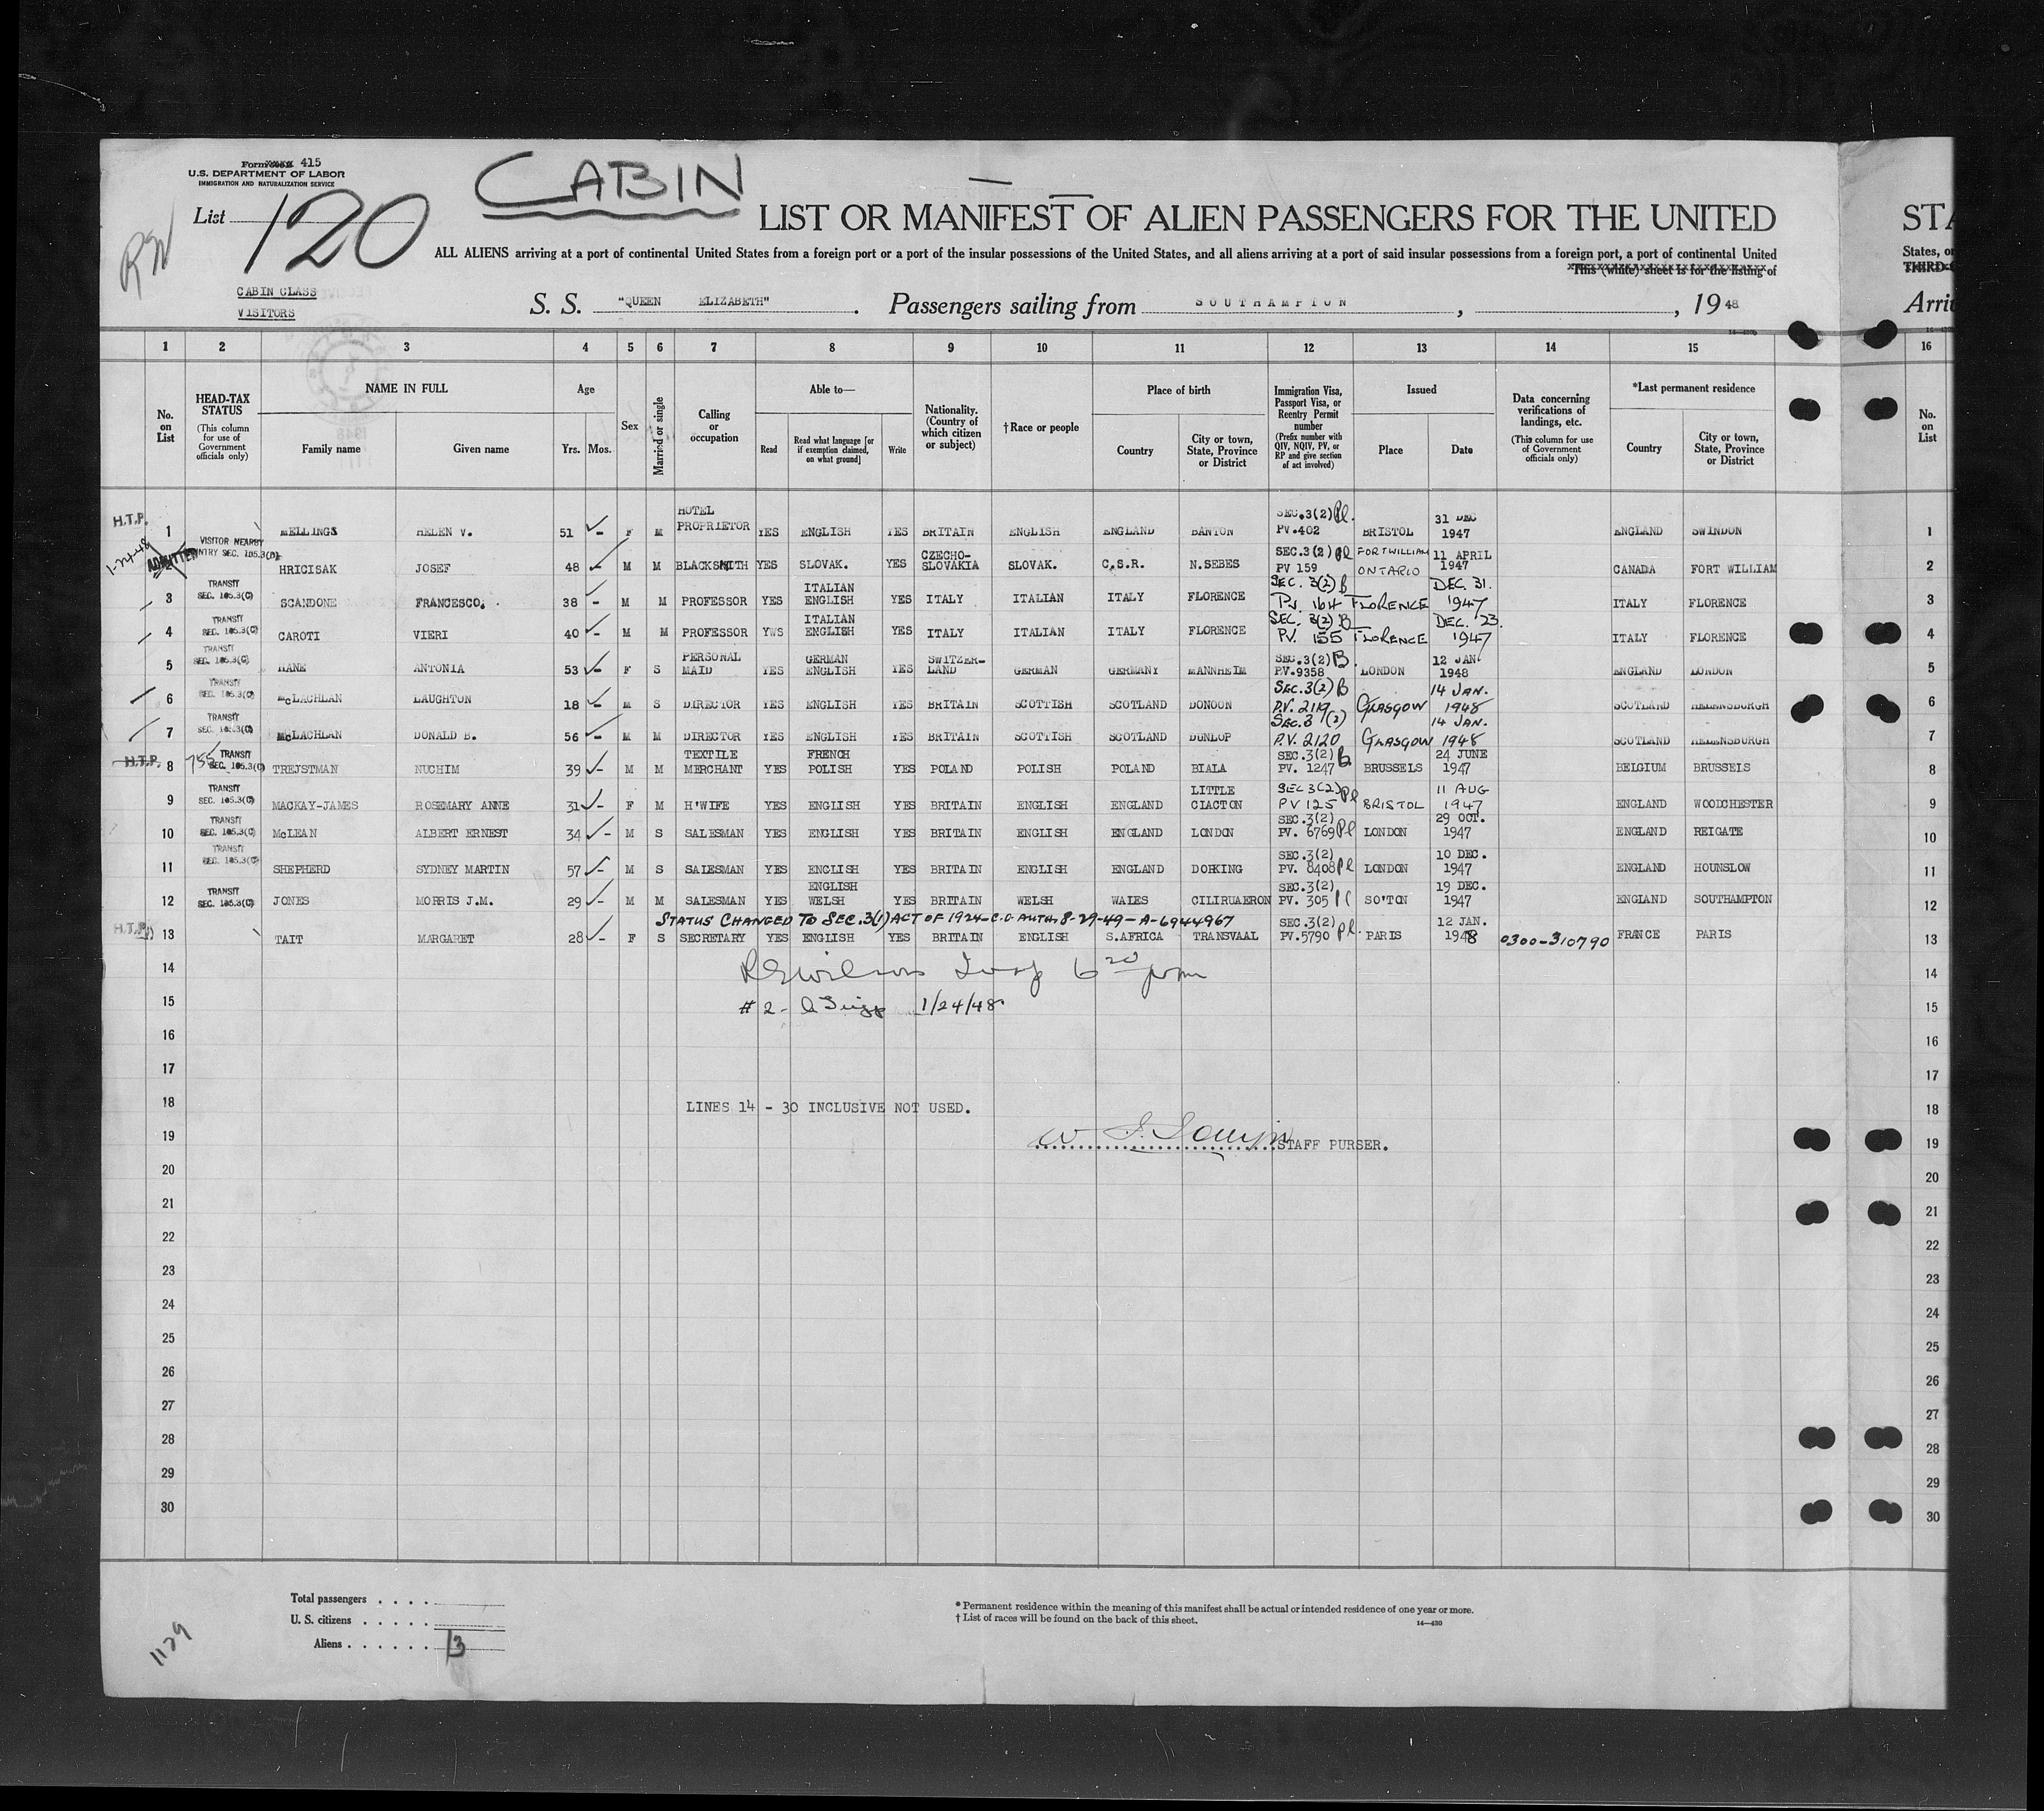 Form 415
U.S. DEPARTMENT OF LABOR
IMMIGRATION AND NATURALIZATION SERVICE
CABIN
List 120
LIST OR MANIFEST OF ALIEN PASSENGERS FOR THE UNITED STA
ALL ALIENS arriving at a port of continental United States from a foreign port or a port of the insular possessions of the United States, and all aliens arriving at a port of said insular possessions from a foreign port, a port of continental United States, or
This (white) sheet is for the listing of THIRD-
CABIN CLASS
VISITORS
S. S. "QUEEN ELIZABETH". Passengers sailing from SOUTHAMPTON, , 1948 Arri
1 2 3 4 5 6 7 8 9 10 11 12 13 14 15 16
No. on List
HEAD-TAX STATUS (This column for use of Government officials only)
NAME IN FULL Family name Given name
Age Yrs. Mos.
Sex
Married or single
Calling or occupation
Able to— Read Read what language [or if exemption claimed, on what ground] Write
Nationality. (Country of which citizen or subject)
†Race or people
Place of birth Country City or town, State, Province or District
Immigration Visa, Passport Visa, or Reentry Permit number (Prefix number with QIV, NQIV, PV, or RP and give section of act involved)
Issued Place Date
Data concerning verifications of landings, etc. (This column for use of Government officials only)
*Last permanent residence Country City or town, State, Province or District
No. on List
H.T.P. 1 MELLINGS HELEN V. 51 - F M HOTEL PROPRIETOR YES ENGLISH YES BRITAIN ENGLISH ENGLAND BANTON SEC.3(2) Pl. PV.402 BRISTOL 31 DEC 1947 ENGLAND SWINDON 1
1-24-48 ADMITTED 2 VISITOR NEARBY ENTRY SEC. 105.3(D) HRICISAK JOSEF 48 - M M BLACKSMITH YES SLOVAK. YES CZECHO-SLOVAKIA SLOVAK. C.S.R. N.SEBES SEC.3(2) Pl PV 159 FORT WILLIAM ONTARIO 11 APRIL 1947 CANADA FORT WILLIAM 2
3 TRANSIT SEC. 105.3(C) SCANDONE FRANCESCO. 38 - M M PROFESSOR YES ITALIAN ENGLISH YES ITALY ITALIAN ITALY FLORENCE SEC. 3(2) B PV. 164 FLORENCE DEC. 31. 1947 ITALY FLORENCE 3
4 TRANSIT SEC. 105.3(C) CAROTI VIERI 40 - M M PROFESSOR YWS ITALIAN ENGLISH YES ITALY ITALIAN ITALY FLORENCE SEC. 3(2) B PV. 155 FLORENCE DEC. 23. 1947 ITALY FLORENCE 4
5 TRANSIT SEC. 105.3(C) HANE ANTONIA 53 - F S PERSONAL MAID YES GERMAN ENGLISH YES SWITZER-LAND GERMAN GERMANY MANNHEIM SEC.3(2) B. P.V.9358 LONDON 12 JAN 1948 ENGLAND LONDON 5
6 TRANSIT SEC. 105.3(C) McLACHLAN LAUGHTON 18 - M S DIRECTOR YES ENGLISH YES BRITAIN SCOTTISH SCOTLAND DONOON SEC.3(2) B P.V. 2119 GLASGOW 14 JAN. 1948 SCOTLAND HELENSBURGH 6
7 TRANSIT SEC. 105.3(C) McLACHLAN DONALD B. 56 - M M DIRECTOR YES ENGLISH YES BRITAIN SCOTTISH SCOTLAND DUNLOP SEC.3 (2) P.V. 2120 GLASGOW 14 JAN. 1948 SCOTLAND HELENSBURGH 7
H.T.P. 8 755 TRANSIT SEC. 105.3(C) TREJSTMAN NUCHIM 39 - M M TEXTILE MERCHANT YES FRENCH POLISH YES POLAND POLISH POLAND BIALA SEC.3(2) B PV. 1247 BRUSSELS 24 JUNE 1947 BELGIUM BRUSSELS 8
9 TRANSIT SEC. 105.3(C) MACKAY-JAMES ROSEMARY ANNE 31 - F M H'WIFE YES ENGLISH YES BRITAIN ENGLISH ENGLAND LITTLE CLACTON SEC 3(2) Pl PV 125 BRISTOL 11 AUG 1947 ENGLAND WOODCHESTER 9
10 TRANSIT SEC. 105.3(C) McLEAN ALBERT ERNEST 34 - M S SALESMAN YES ENGLISH YES BRITAIN ENGLISH ENGLAND LONDON SEC.3(2) PV. 6769 Pl LONDON 29 OCT. 1947 ENGLAND REIGATE 10
11 TRANSIT SEC. 105.3(C) SHEPHERD SYDNEY MARTIN 57 - M S SALESMAN YES ENGLISH YES BRITAIN ENGLISH ENGLAND DORKING SEC.3(2) PV. 8408 Pl LONDON 10 DEC. 1947 ENGLAND HOUNSLOW 11
12 TRANSIT SEC. 105.3(C) JONES MORRIS J.M. 29 - M M SALESMAN YES ENGLISH WELSH YES BRITAIN WELSH WALES CILIRUAERON SEC.3(2) PV. 305 SO'TON 19 DEC. 1947 ENGLAND SOUTHAMPTON 12
STATUS CHANGED TO SEC.3(1) ACT OF 1924-C.O. AUTH. 8-29-49-A-6944967
H.T.P. 13 TAIT MARGARET 28 - F S SECRETARY YES ENGLISH YES BRITAIN ENGLISH S.AFRICA TRANSVAAL SEC.3(2) PV.5790 Pl. PARIS 12 JAN. 1948 0300-310790 FRANCE PARIS 13
14 Insp 6 20 pm 14
15 # 2 - 1/24/48 15
16 16
17 17
18 LINES 14 - 30 INCLUSIVE NOT USED. 18
19 STAFF PURSER. 19
20 20
21 21
22 22
23 23
24 24
25 25
26 26
27 27
28 28
29 29
30 30
Total passengers . . . .
U. S. citizens . . . . .
Aliens . . . . . . 13
* Permanent residence within the meaning of this manifest shall be actual or intended residence of one year or more.
† List of races will be found on the back of this sheet.
14—430
1129